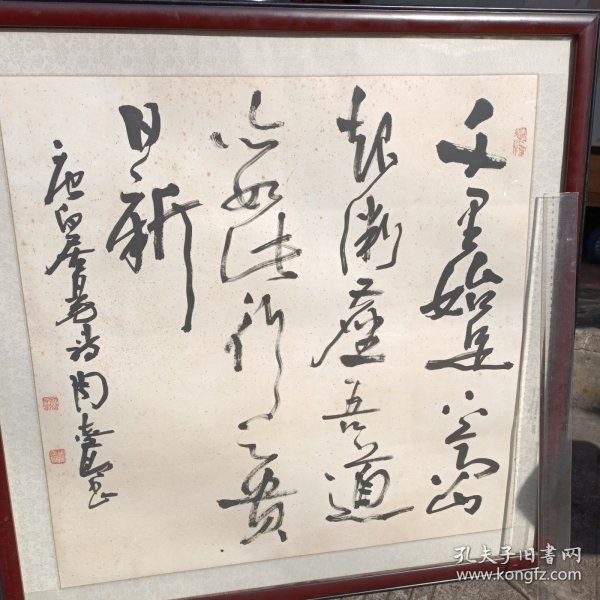 千里始足下高山
起微塵吾道
亦如此行之貴
日新
唐白居易詩 陶
孔夫子旧書网
www.kongfz.com